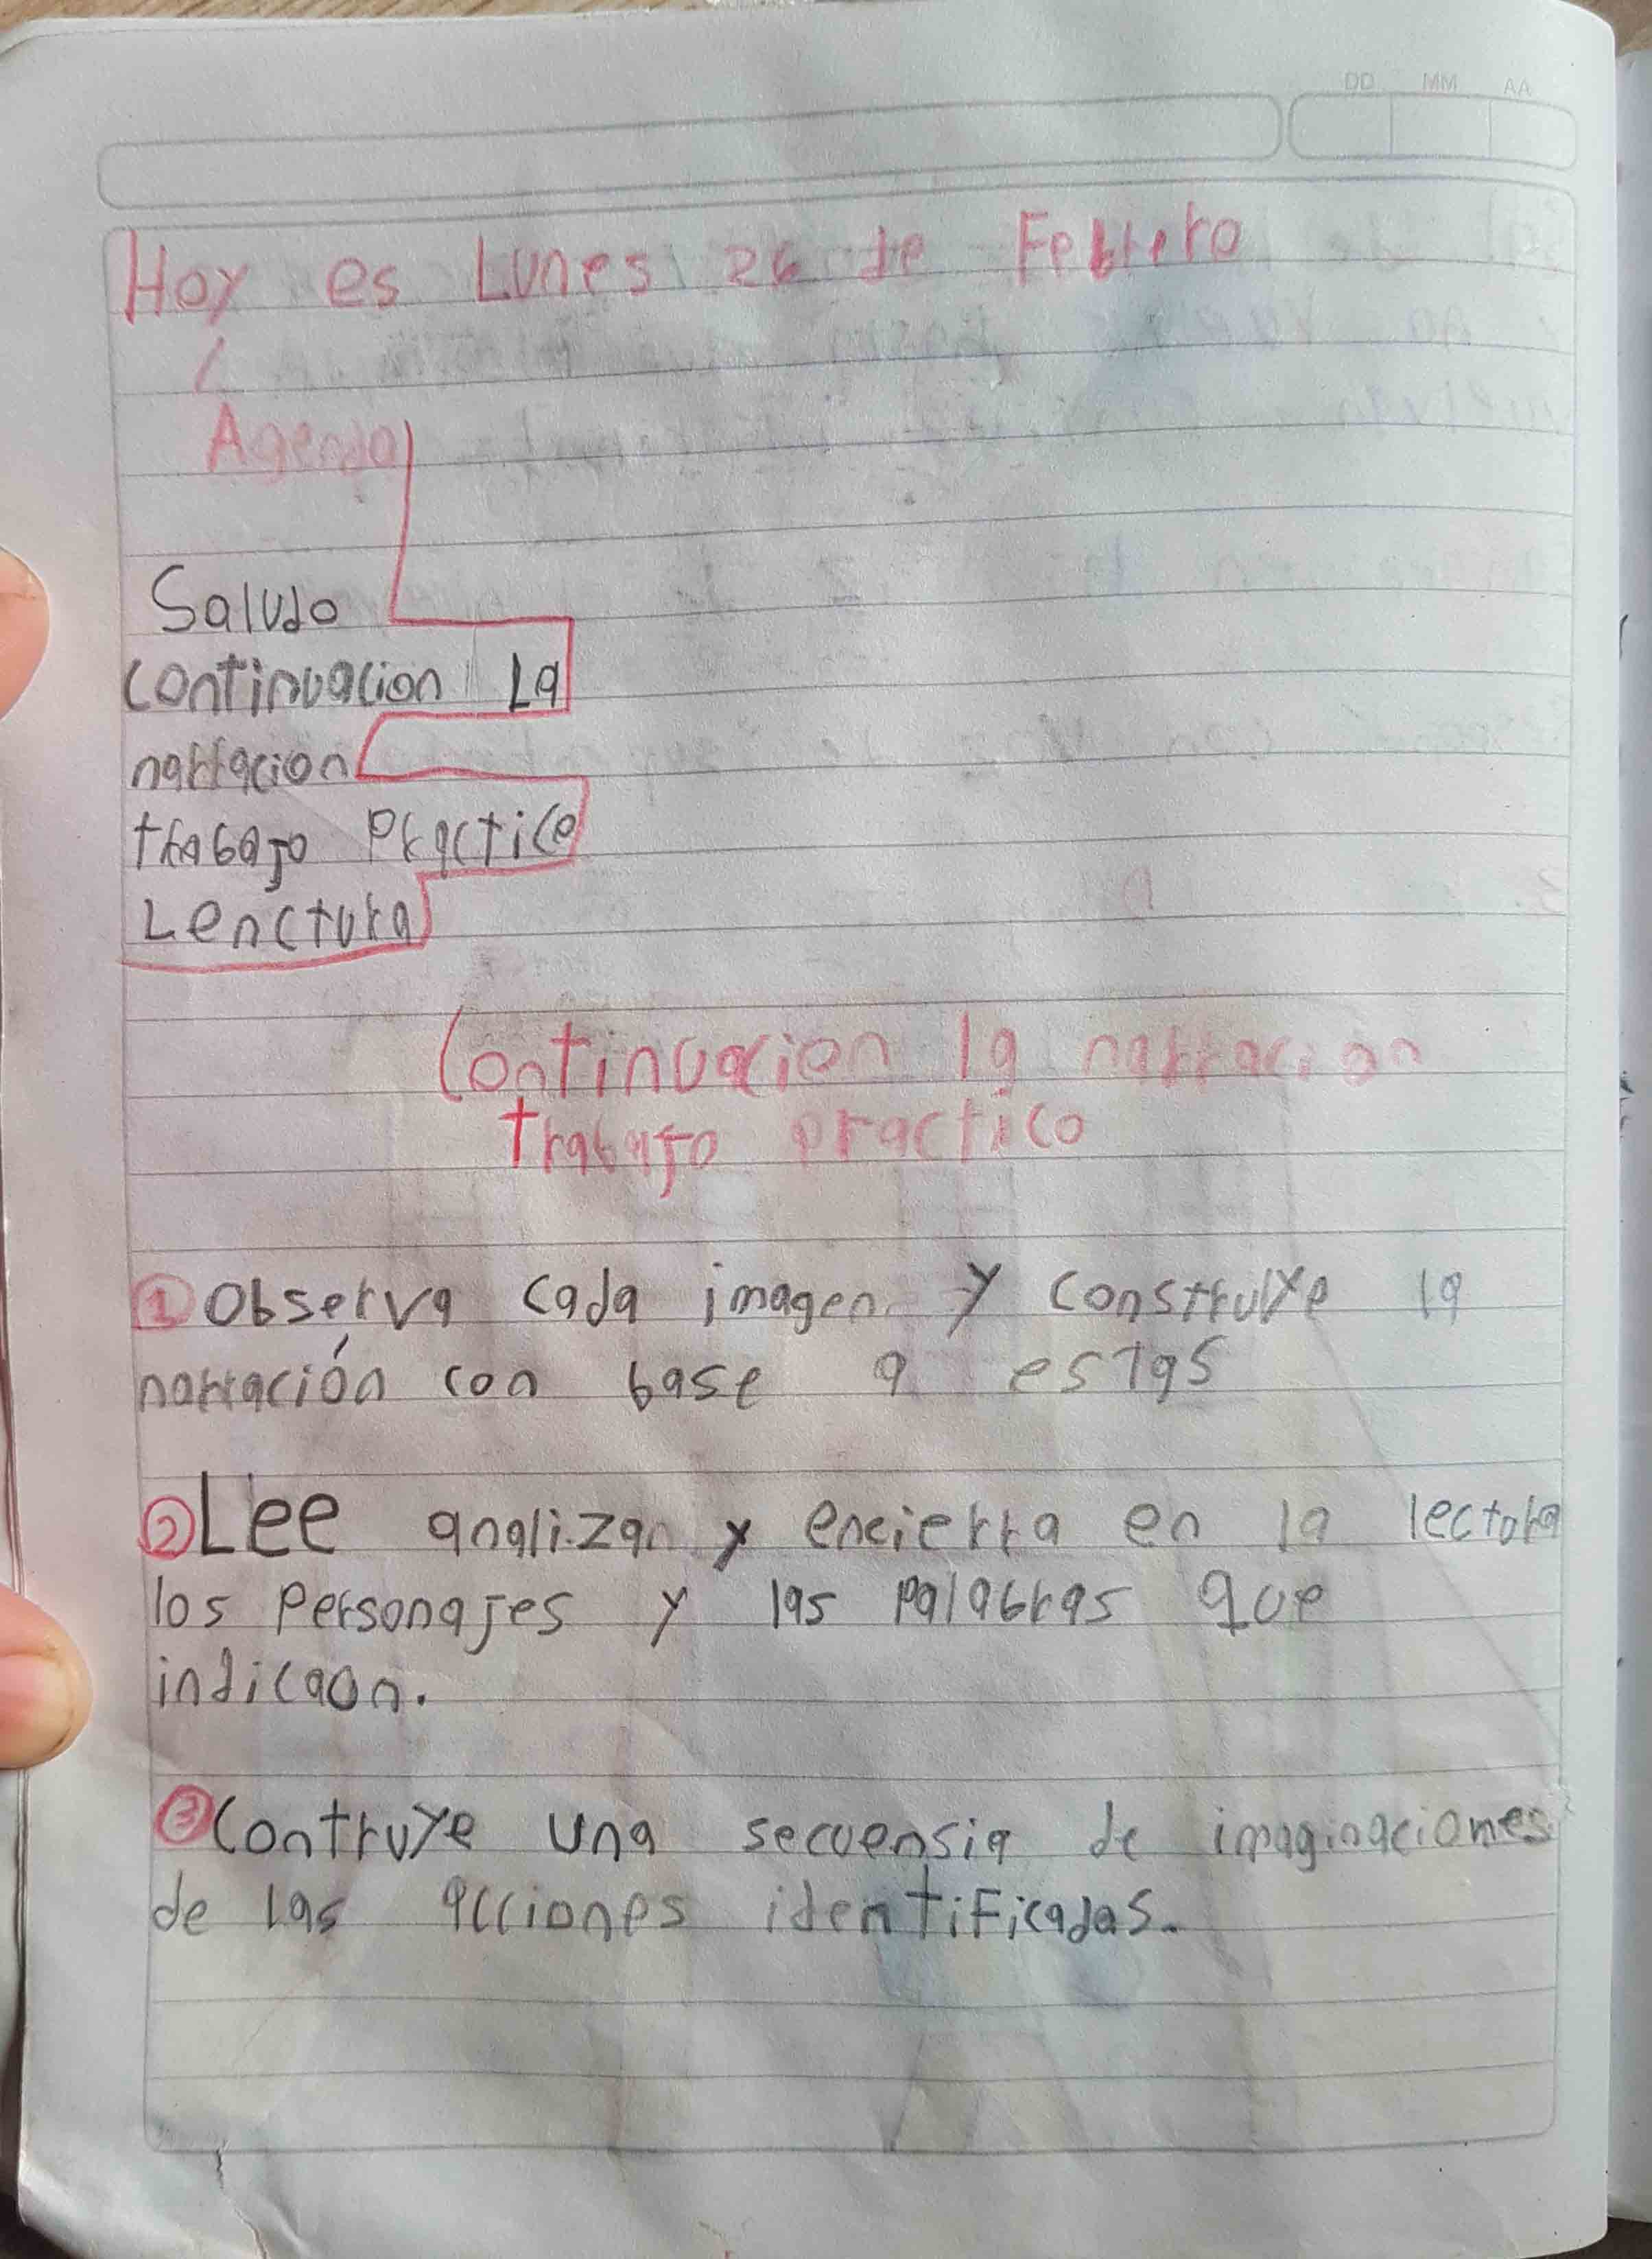 DD MM AA
Hoy es Lunes 26 de Febrero
Agenda
Saludo
continuacion La
narracion
trabajo Practice
Lenctura
Continuacion la narracion
trabajo practico
1 Observa cada imagen y construye la
narración con base a estas
2 Lee analizan y encierra en la lectura
los Personajes y las palabras que
indicaon.
3 Contruye una secuensia de imaginaciones
de las acciones identificadas.